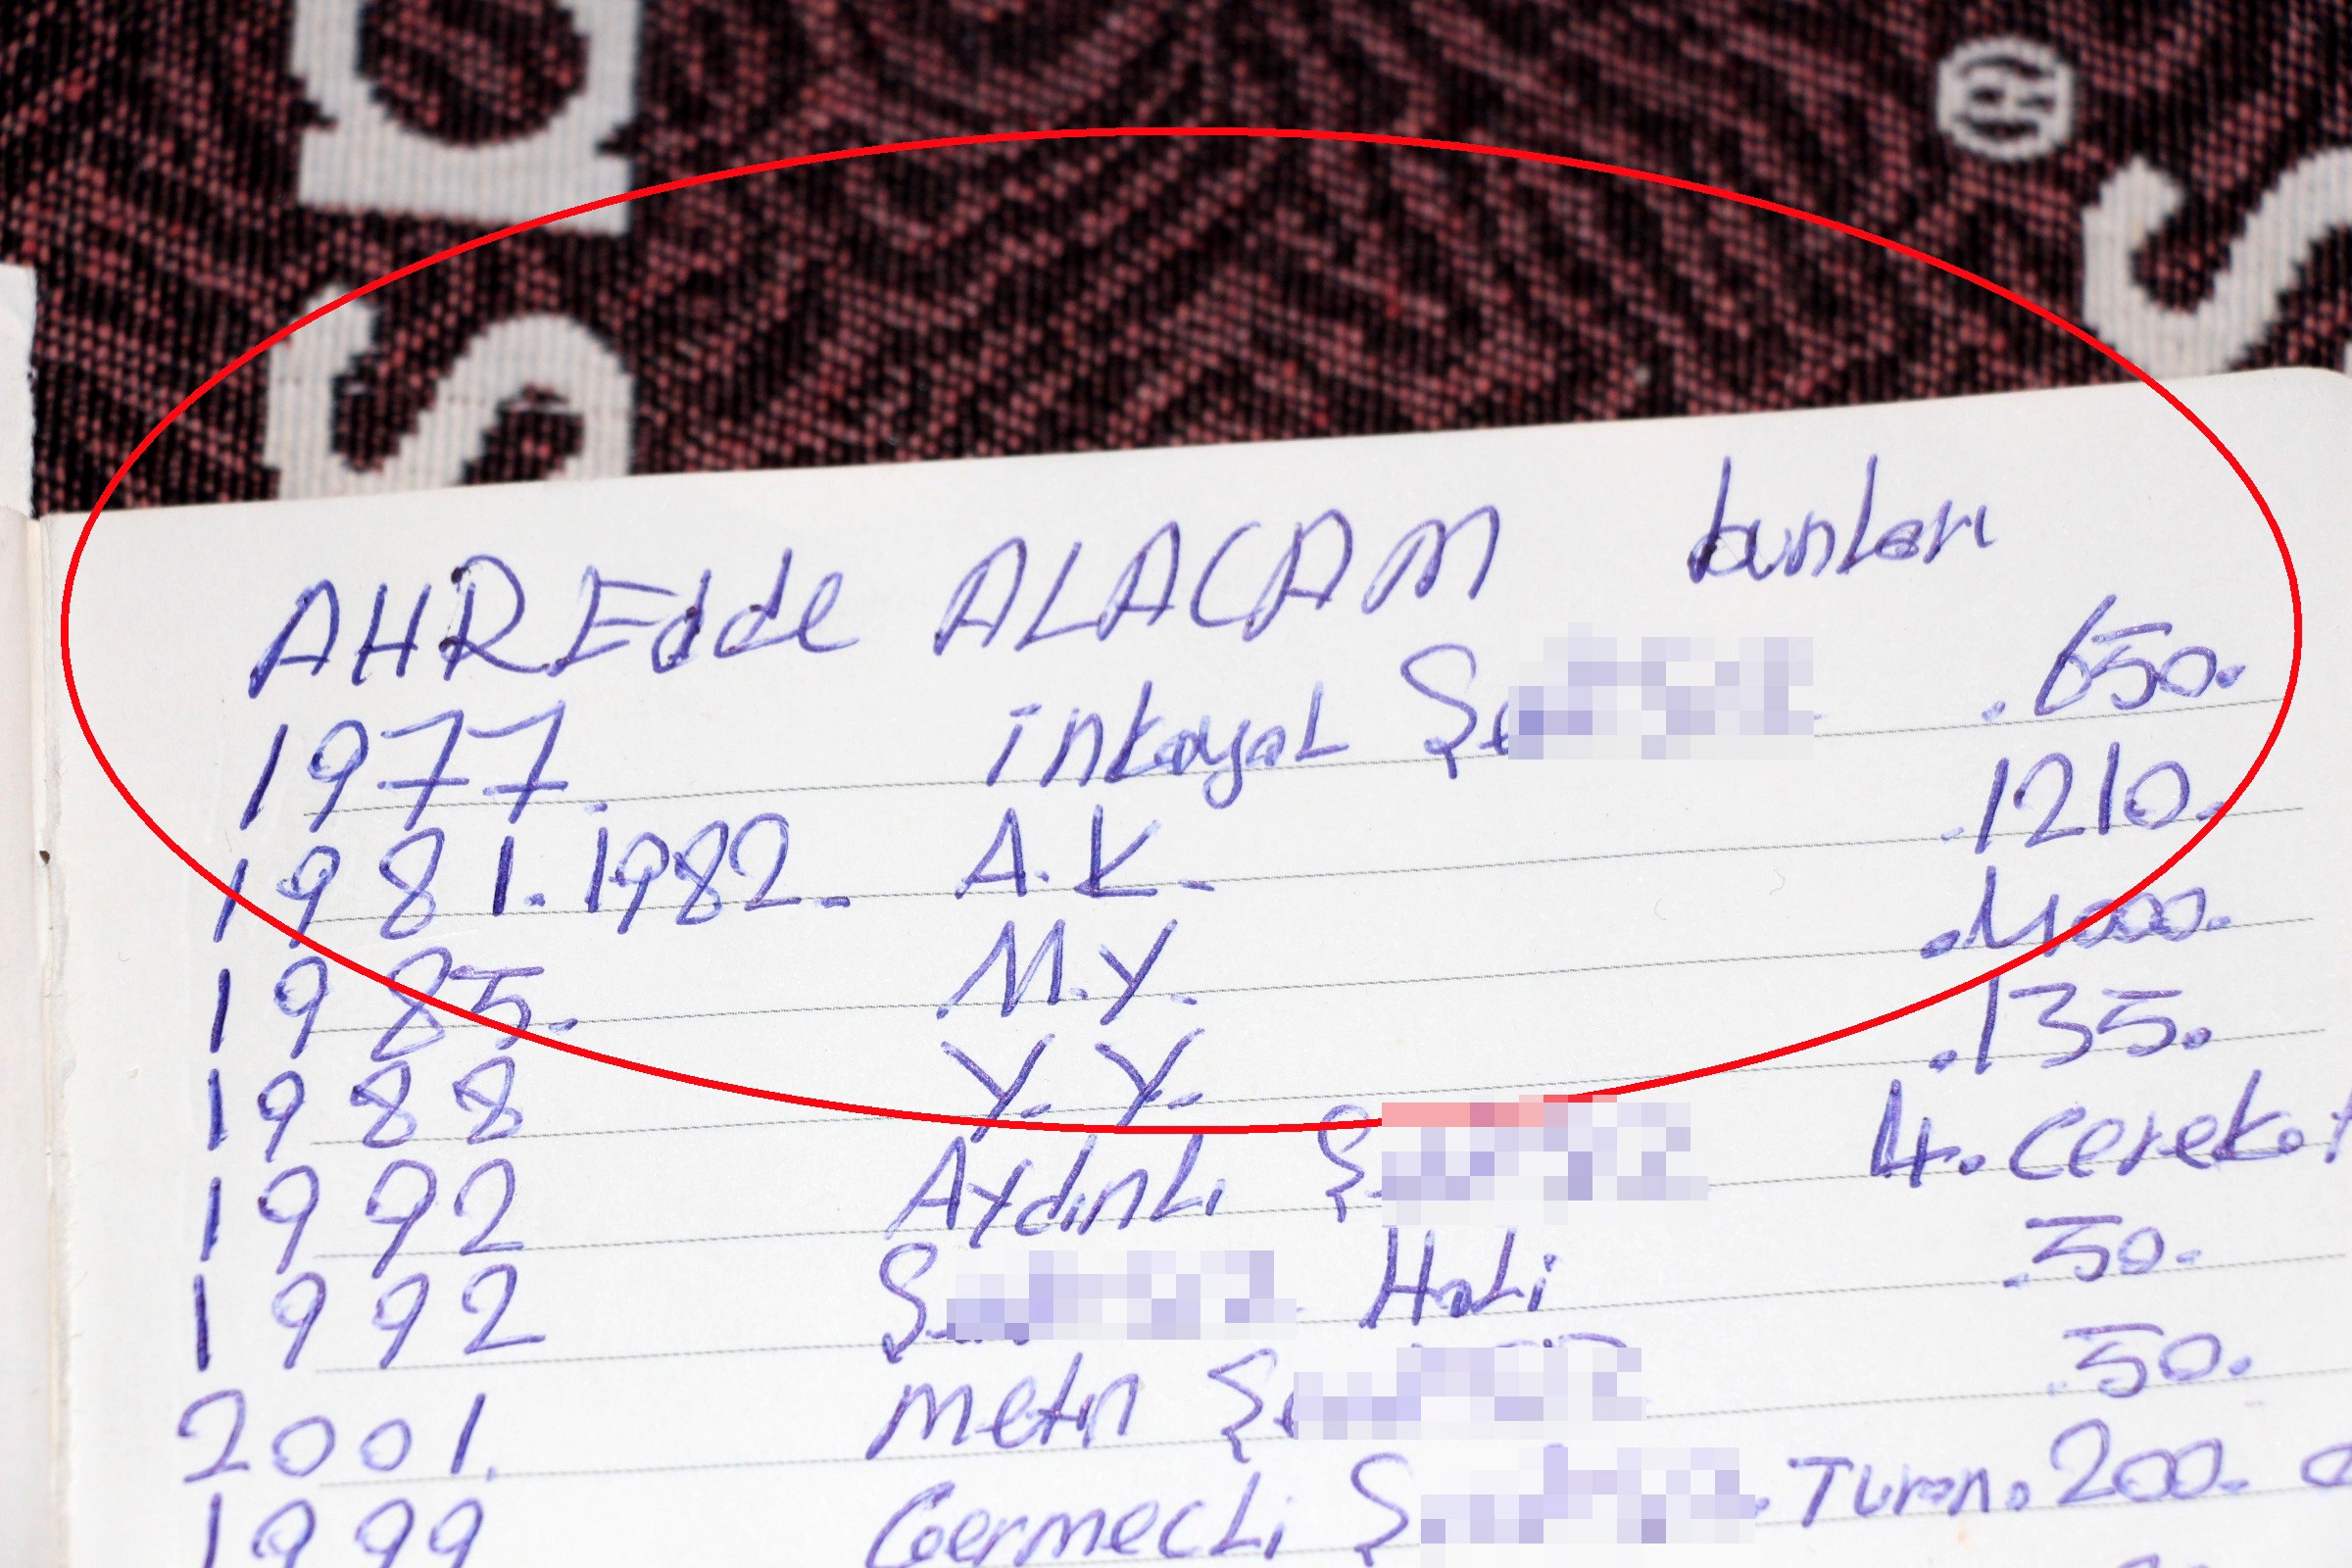 AHREdde ALACAM bunları
1977. inkayal Şe .650.
1981.1982. A.K. .1210.
1985. M.Y. .4000.
1988 Y.Y. .135.
1992 Aydınlı Ş 4. Cerekot
1992 Ş Hali .50.
2001. metin Ş .50.
1999 Germecli Ş . Turan. 200.